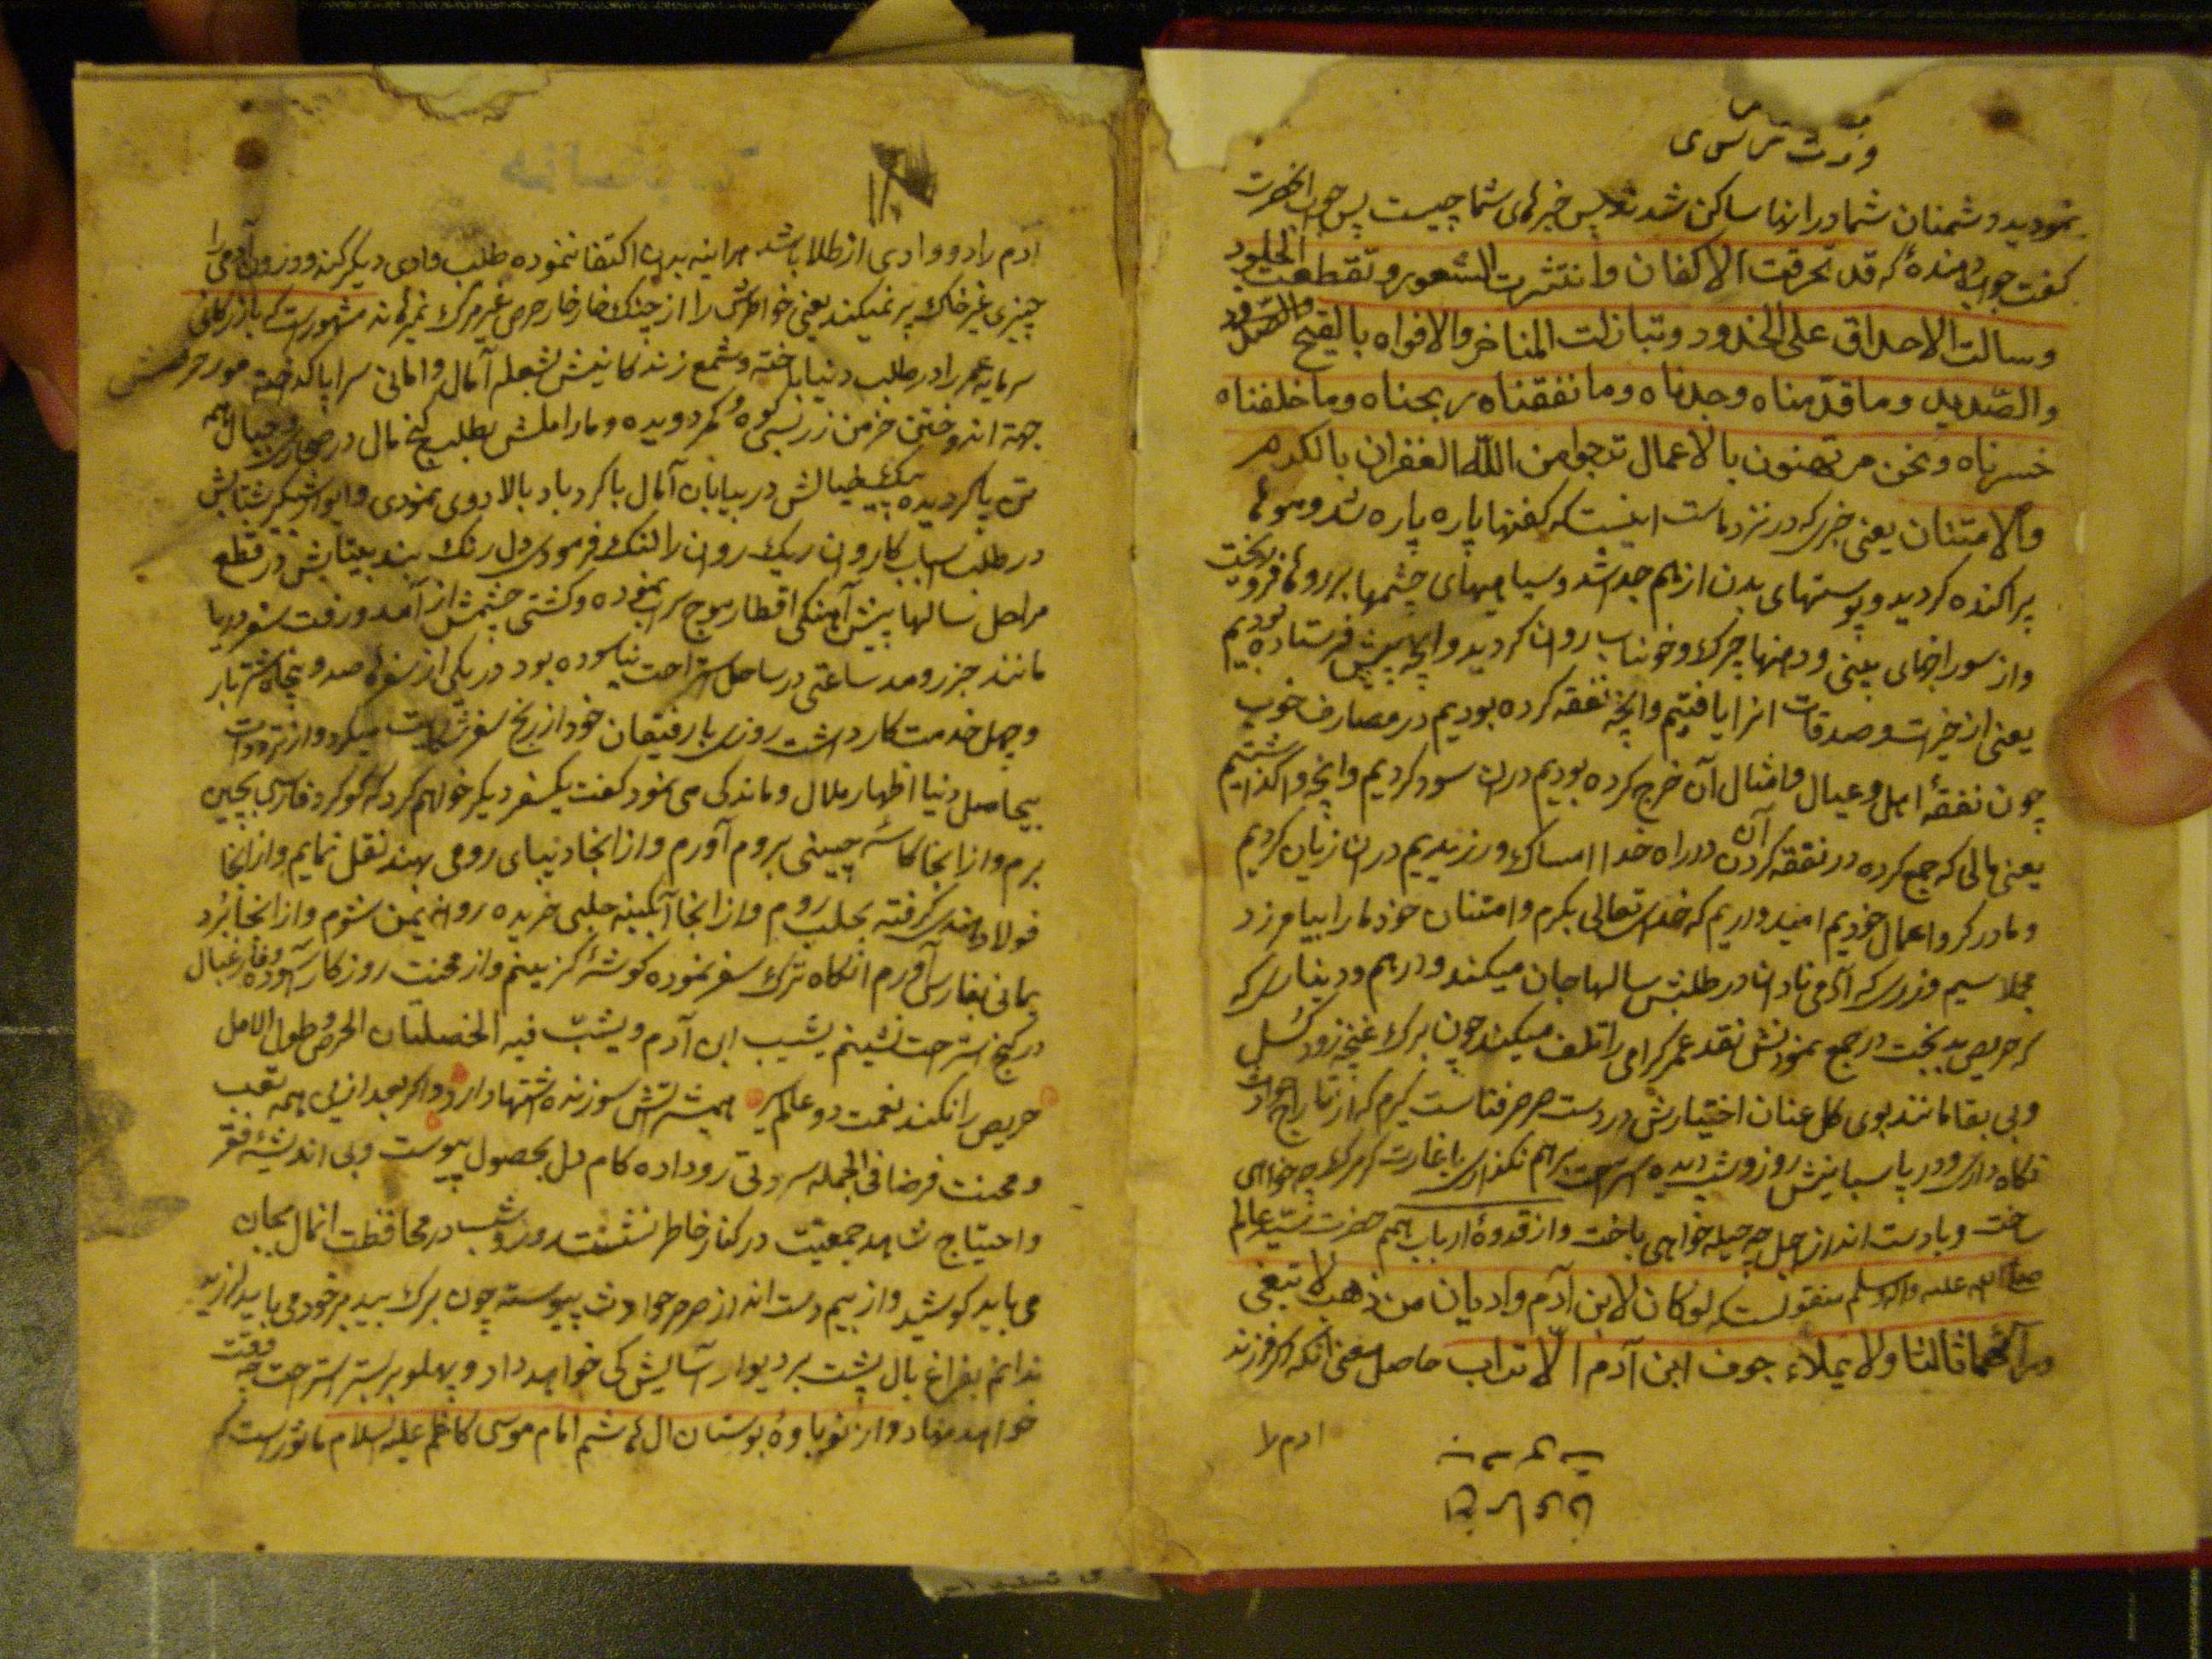 نمودید و دشمنان شما در انها ساکن شدند پس خبرهای شما چیست پس جواب
کفت جواب دهنده که قد تحرقت الاکفان وانتثرت الشعور وتقطعت الجلود
وسالت الاحداق علی الخدود وتنازلت المناخر والافواه بالقیح
والصدید وما قدمناه وجدناه وما نفقناه ربحناه وما خلفناه
خسرناه ونحن مرتهنون بالاعمال نرجوا من الله الغفران بالکرم
والامتنان یعنی خبری که در نزد ماست اینست که کفنها پاره پاره شد و موها
پراکنده کردید و پوستهای بدن از هم جدا شد و سیاهیهای چشمها بر روها فرو ریخت
و از سوراخهای بینی و دهنها چرک و خوناب روان کردید و انچه پیش فرستاده بودیم
یعنی از خیرات و صدقات انرا یافتیم و انچه نفقه کرده بودیم در مصارف خوب
چون نفقهٔ اهل و عیال و امثال آن خرج کرده بودیم دران سود کردیم و انچه وا کذاشتیم
یعنی مالی که جمع کرده در نفقه کردن آن در راه خدا امساک ورزیدیم دران زیان کردیم
و ما در کرو اعمال خودیم امیدواریم که خدای تعالی بکرم و امتنان خود ما را بیامرزد
مجملا سیم و زری که آدمی نادان در طلبش سالها جان میکند و درهم و دیناری که
که حریص بدبخت در جمع نمودنش نقد عمر کرامی را تلف میکند چون برک غنچه زود کسل
و بی بقا مانند بوی کل عنان اختیارش در دست صرصر فناست کیرم که از تاراج حوادث
نکاه داری و در پاسبانیش روز و شب دیده استراحت برهم نکذاری با غارت مرک چه خواهی
ساخت و با دست انداز اجل چه حیله خواهی باخت و از قدوهٔ ارباب همم حضرت سید عالم
صلی الله علیه واله وسلم منقولست که لو کان لابن آدم وادیان من ذهب لا تبغی
ورآئهما ثالثا ولا یملاء جوف ابن آدم الا تراب حاصل معنی انکه اکر فرزند
ادم را
آدم را دو وادی از طلا باشد هراینه بدان اکتفا ننموده طلب وادی دیکر کند و درون آدمی را
چیزی غیر خاک پر نمیکند یعنی خواهش را از چنک خار خار حرص غیر مرک نمیرهاند مشهورست که بازرکانی
سرمایه عمر را در طلب دنیا باخته و شمع زندکانیش بشعله آمال و امانی سراپا کداخته مور حرصش
جهة اندوختن خرمن زر بسی کوه و کمر دویده و مار املش بطلب کنج مال در صحاری و جبال همه
تن پا کردیده پیک خیالش در بیابان آمال با کردباد بالا دوی نمودی
در طلب اسباب کاروان ریک روان را لنک فرمودی
مراحل سالها پیش آهنکی اقطار موج سراب نموده و کشتی چشمش از آمد و رفت سفر دریا
مانند جزر و مد ساعتی در ساحل استراحت نیاسوده بود در یکی از سفرها صد و پنجاه شتر بار
و چهل خدمت کار داشت روزی با رفیقان خود از رنج سفر شکایت میکرد و از ترددات
بیحاصل دنیا اظهار ملال و ماندکی می نمود کفت یکسفر دیکر خواهم کرد که کوکرد فارسی بچین
برم و از انجا کاسهٔ چینی بروم آورم و از انجا دیبای رومی بهند نقل نمایم و از انجا
فولاد هندی کرفته بحلب روم و از انجا آبکینه حلبی خریده روانه یمن شوم و از انجا برد
یمانی بفارس آورم انکاه ترک سفر نموده کوشهٔ کزینم و از محنت روزکار آسوده و فارغبال
در کنج استراحت نشینم یشیب ابن آدم ویشب فیه الخصلتان الحرص وطول الامل
حریص را نکند نعمت دو عالم سیر همیشه آتش سوزنده اشتها دارد و اکر بعد از این همه تعب
و محنت فرضا فی الجمله سر و برکی رو داده کام دل بحصول پیوست و بی اندیشهٔ فقر
و احتیاج شاهد جمعیت در کنار خاطر نشست روز و شب در محافظت انمال بجان
می باید کوشید و از بیم دست انداز صرصر حوادث پیوسته چون برک بید بر خود می باید لرزید
ندانم بفراغ بال پشت بر دیوار آسایش کی خواهد داد و پهلو بر بستر استراحت چه وقت
خواهد نهاد و از نوباوهٔ بوستان ال هاشم امام موسی کاظم علیه السلام ماثورست که